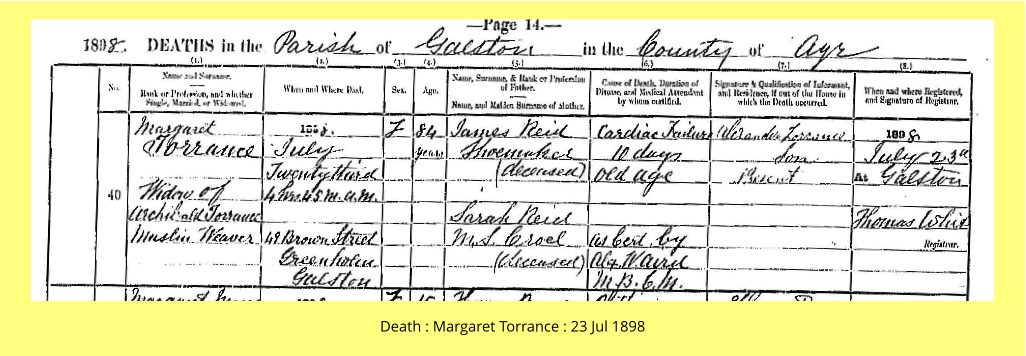 —Page 14.—
1898. DEATHS in the Parish of Galston in the County of Ayr
(1.) (2.) (3.) (4.) (5.) (6.) (7.) (8.)
No.
Name and Surname.
Rank or Profession, and whether
Single, Married, or Widowed.
When and Where Died.
Sex.
Age.
Name, Surname, & Rank or Profession
of Father.
Name, and Maiden Surname of Mother.
Cause of Death, Duration of
Disease, and Medical Attendant
by whom certified.
Signature & Qualification of Informant,
and Residence, if out of the House in
which the Death occurred.
When and where Registered,
and Signature of Registrar.
40
Margaret
Torrance
Widow of
Archibald Torrance
Muslin Weaver
1898.
July
Twenty third
4 hrs. 45 m. a.m.
49 Brown Street
Greenholm
Galston
F
84
years
James Reid
Shoemaker
(deceased)
Sarah Reid
M.S.
(deceased)
Cardiac Failure
10 days
Old age
As Cert. by
M.B. C.M.
Alexander Torrance
Son
Present
1898.
July 23rd
At Galston
Thomas
Registrar.
Death : Margaret Torrance : 23 Jul 1898